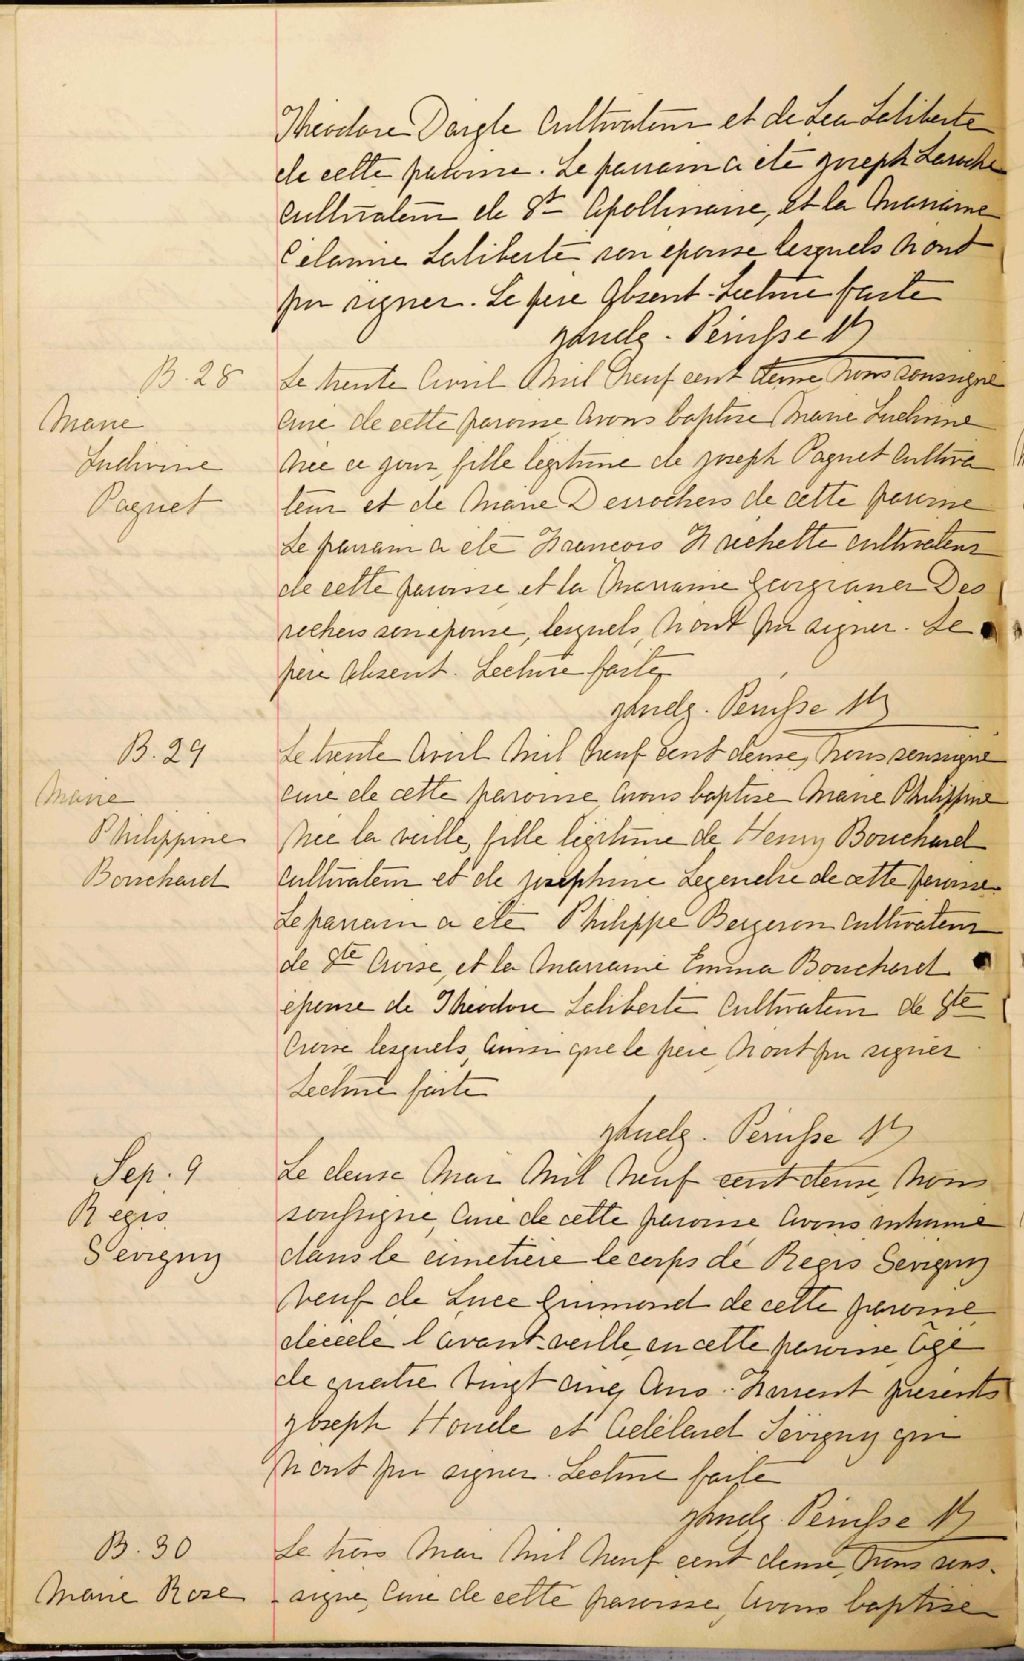 Théodore Daigle cultivateur et de Léa Laliberté
de cette paroisse. Le parrain a été Joseph Laroche
cultivateur de St Apollinaire, et la marraine
Célanire Laliberté son épouse lesquels n'ont
pu signer. Le père absent. Lecture faite
Pérusse Ptr
B. 28
Marie
Ludivine
Paquet
Le trente Avril Mil Neuf cent douze, nous soussigné
curé de cette paroisse, avons baptisé Marie Ludivine
née ce jour, fille légitime de Joseph Paquet cultiva
teur et de Marie Desrochers de cette paroisse
Le parrain a été François Fréchette cultivateur
de cette paroisse, et la Marraine Georgianna Des
rochers son épouse, lesquels, n'ont pu signer. Le
père absent. Lecture faite
Pérusse Ptr
B. 29
Marie
Philippine
Bouchard
Le trente Avril Mil Neuf cent douze, nous soussigné
curé de cette paroisse, avons baptisé Marie Philippine
née la veille, fille légitime de Henry Bouchard
cultivateur et de Joséphine Legendre de cette paroisse.
Le parrain a été Philippe Bergeron cultivateur
de Ste Croix, et la Marraine Emma Bouchard
épouse de Théodore Laliberté cultivateur de Ste
Croix lesquels, ainsi que le père, n'ont pu signer.
Lecture faite
Pérusse Ptr
Sep. 9
Régis
Sévigny
Le deux Mai Mil Neuf cent douze, nous
soussigné, curé de cette paroisse avons inhumé
dans le cimetière le corps de Régis Sévigny
veuf de Luce Grimond de cette paroisse,
décédé l'avant-veille, en cette paroisse, âgé
de quatre vingt cinq ans. Furent présents
Joseph Houle et Adélard Sévigny qui
n'ont pu signer. Lecture faite
Pérusse Ptr
B. 30
Marie Rose
Le trois Mai Mil Neuf cent douze, nous sous-
-signé, curé de cette paroisse, avons baptisé